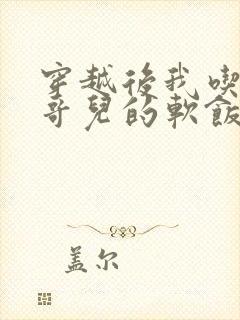 穿越後我喫
哥兒的軟飯
盖尔